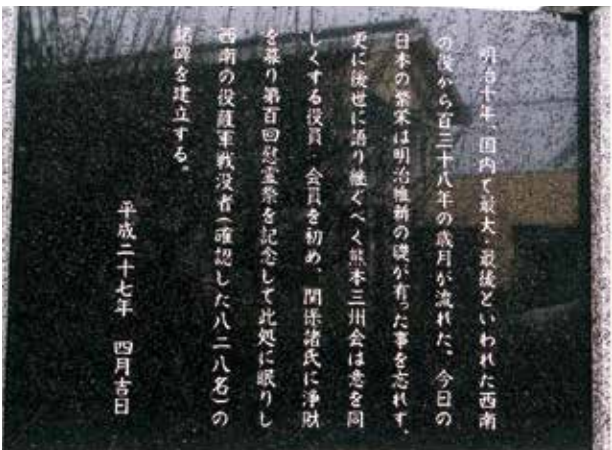 明治十年、国内で最大・最後といわれた西南
の役から百三十八年の歳月が流れた。今日の
日本の繁栄は明治維新の礎が有った事を忘れず、
更に後世に語り継ぐべく熊本三州会は意を同
しくする役員・会員を初め、関係諸氏に浄財
を募り第百回慰霊祭を記念して此処に眠りし
西南の役薩軍戦没者(確認した八二八名)の
銘碑を建立する。
平成二十七年 四月吉日